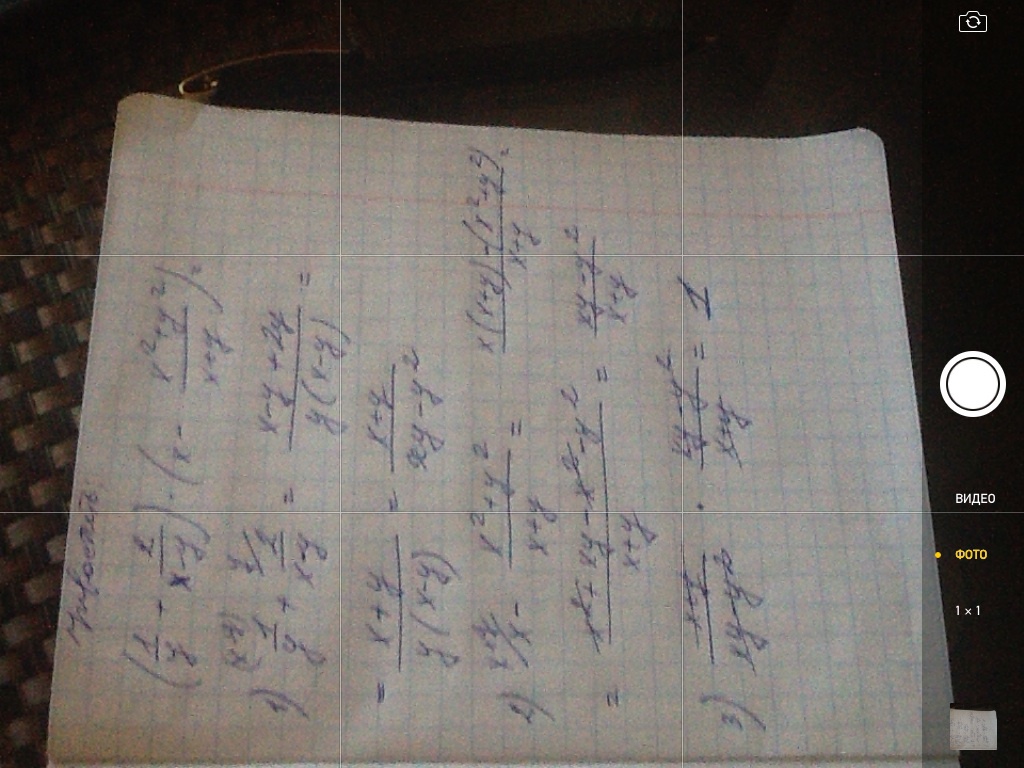 упростить:
(1/y + 2/(x-y)) · (x - (x²+y²)/(x+y)) =
1) (x-y)/ 1/y + y/ 2/(x-y) = (x-y+2y)/(y(x-y)) =
= (x+y)/(y(x-y)) = (x+y)/(xy-y²)
2) x+y/ x - (x²+y²)/(x+y) = (x(x+y)-(x²+y²))/(x+y) =
= (x²+xy-x²-y²)/(x+y) = (xy-y²)/(x+y)
3) (x+y)/(xy-y²) · (xy-y²)/(x+y) = 1
ВИДЕО
ФОТО
1 × 1